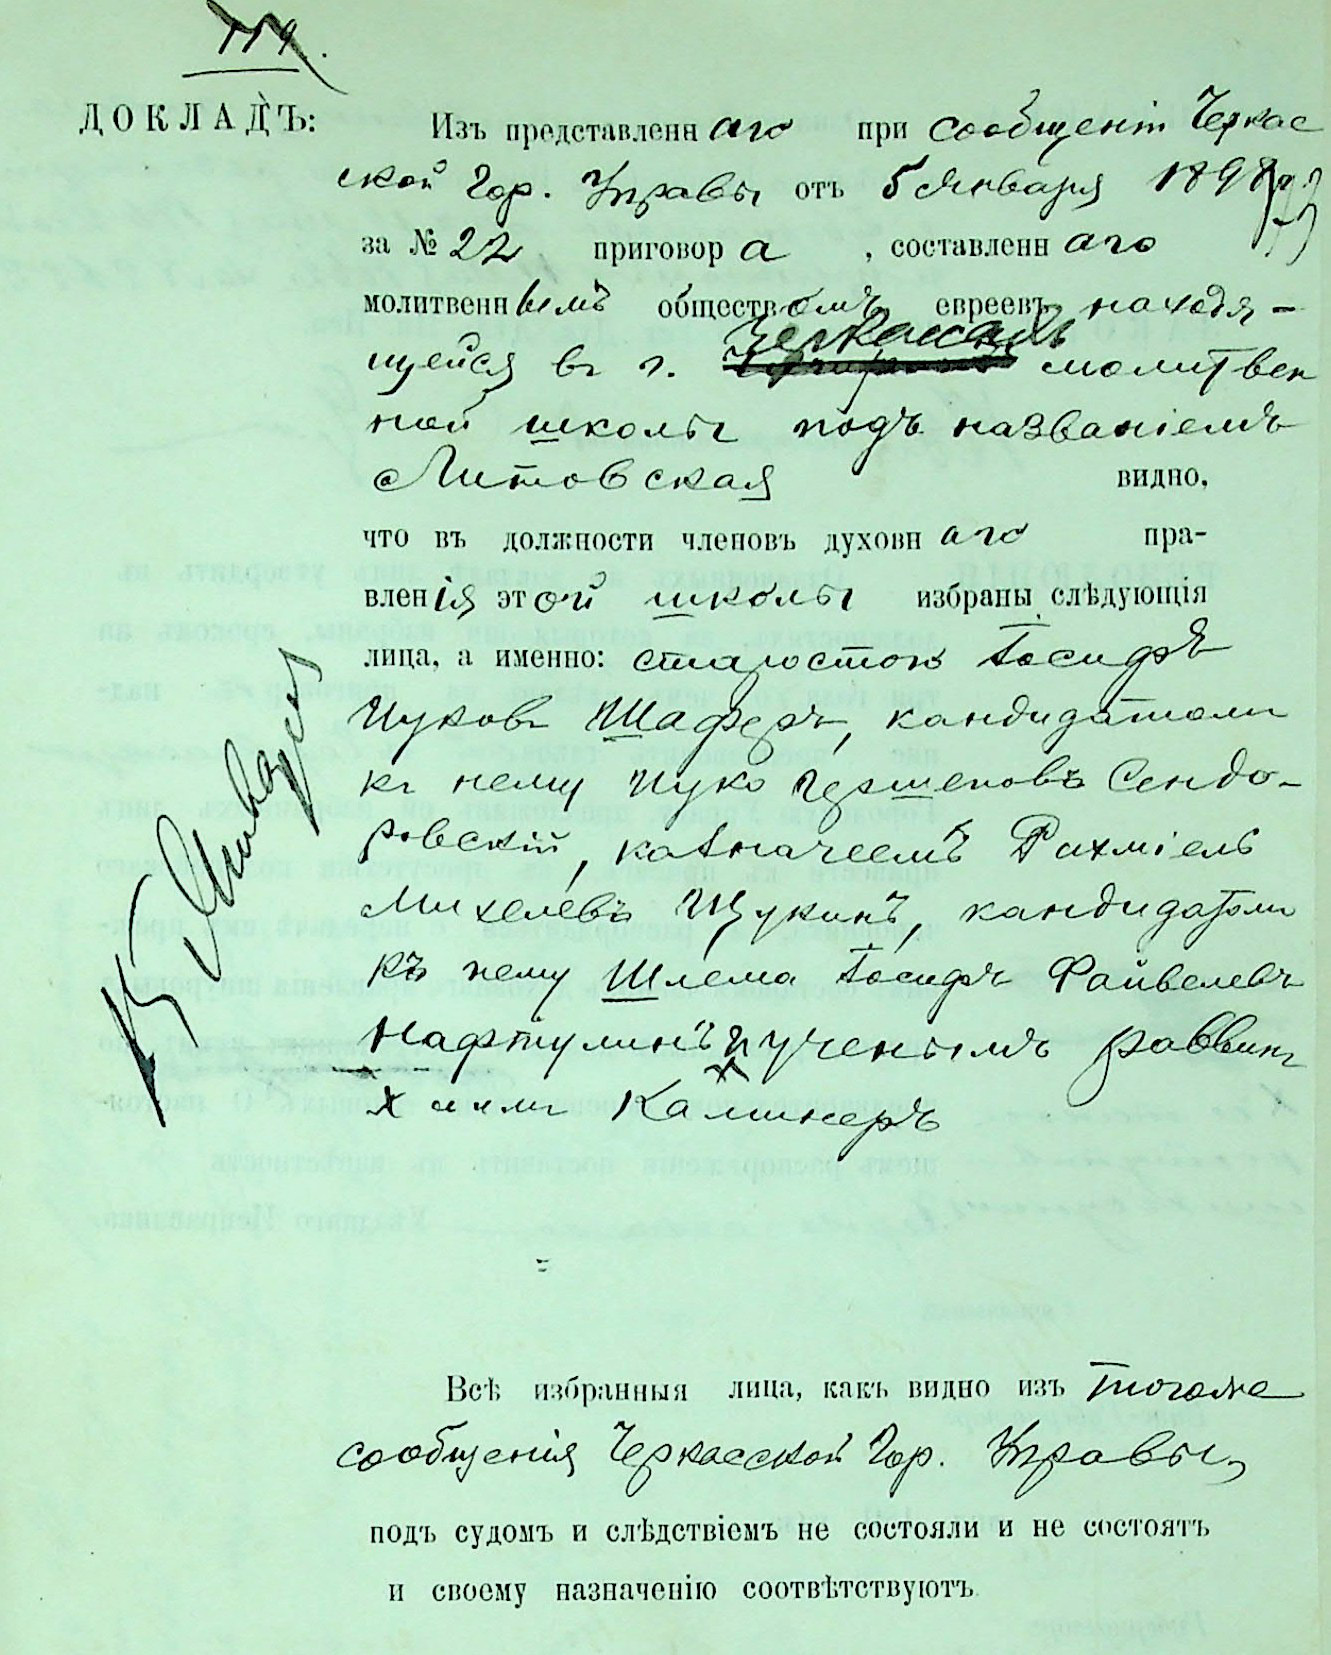 119.
ДОКЛАДЪ:
Изъ представленнаго при сообщеніи Черкас
ской Гор. Управы отъ 5 Января 1898
за № 22 приговора, составленнаго
молитвеннымъ обществомъ евреевъ находя-
щейся въ г. Черкассахъ молитвен
ной школы подъ названіемъ
Литовская видно,
что въ должности членовъ духовнаго пра-
вленія этой школы избраны слѣдующія
лица, а именно: старостою Іосифъ
Ицковъ Шаферъ, кандидатомъ
къ нему Ицко Гершеновъ Сендо-
ровскій, казначеемъ Рахміель
Михелевъ Щукинъ, кандидатомъ
къ нему Шлема Іосифъ Файвелевъ
Нафтулинъ и ученымъ раввин
Хаимъ Каминеръ
Всѣ избранныя лица, какъ видно изъ тогоже
сообщенія Черкасской Гор. Управы,
подъ судомъ и слѣдствіемъ не состояли и не состоятъ
и своему назначенію соотвѣтствуютъ.